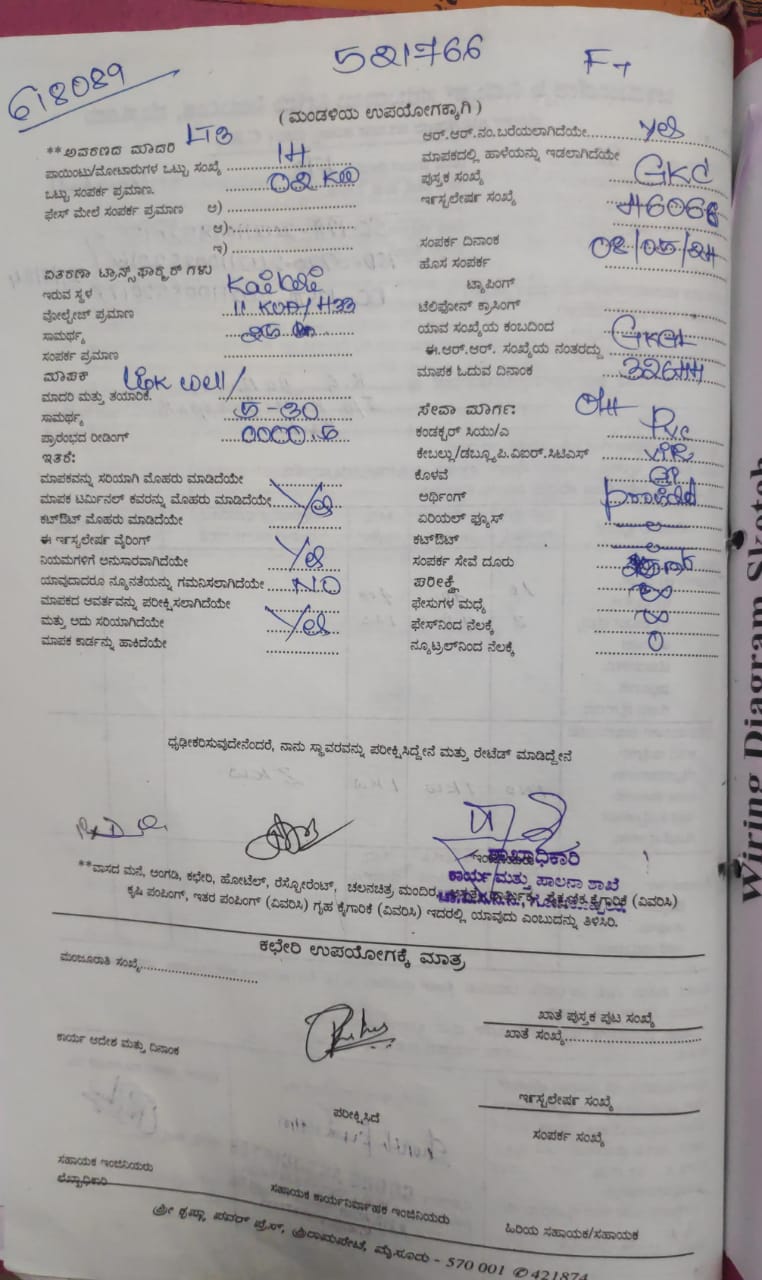 618089
521766
F7
( ಮಂಡಳಿಯ ಉಪಯೋಗಕ್ಕಾಗಿ )
**ಅವಕರಣದ ಮಾದರಿ LT3
ಪಾಯಿಂಟು/ಮೋಟಾರುಗಳ ಒಟ್ಟು ಸಂಖ್ಯೆ
ಒಟ್ಟು ಸಂಪರ್ಕ ಪ್ರಮಾಣ. 02 KW
ಫೇಸ್ ಮೇಲೆ ಸಂಪರ್ಕ ಪ್ರಮಾಣ ಅ)
ಆ)
ಇ)
ವಿತರಣಾ ಟ್ರಾನ್ಸ್‌ಫಾರ್‍ಮರ್ ಗಳು
ಇರುವ ಸ್ಥಳ
ವೋಲ್ಟೇಜ್ ಪ್ರಮಾಣ 11 KVA/433
ಸಾಮರ್ಥ್ಯ
ಸಂಪರ್ಕ ಪ್ರಮಾಣ
ಮಾಪಕ
ಮಾದರಿ ಮತ್ತು ತಯಾರಿಕೆ. Link well/
ಸಾಮರ್ಥ್ಯ 5-30
ಪ್ರಾರಂಭದ ರೀಡಿಂಗ್ 0000.5
ಇತರೆ:
ಮಾಪಕವನ್ನು ಸರಿಯಾಗಿ ಮೊಹರು ಮಾಡಿದೆಯೇ
ಮಾಪಕ ಟರ್ಮಿನಲ್ ಕವರನ್ನು ಮೊಹರು ಮಾಡಿದೆಯೇ Yes
ಕಟ್‌ಔಟ್ ಮೊಹರು ಮಾಡಿದೆಯೇ
ಈ ಇನ್ಸ್ಟಲೇಷನ್ ವೈರಿಂಗ್
ನಿಯಮಗಳಿಗೆ ಅನುಸಾರವಾಗಿದೆಯೇ Yes
ಯಾವುದಾದರೂ ನ್ಯೂನತೆಯನ್ನು ಗಮನಿಸಲಾಗಿದೆಯೇ NO
ಮಾಪಕದ ಆವರ್ತವನ್ನು ಪರೀಕ್ಷಿಸಲಾಗಿದೆಯೇ
ಮತ್ತು ಅದು ಸರಿಯಾಗಿದೆಯೇ Yes
ಮಾಪಕ ಕಾರ್ಡನ್ನು ಹಾಕಿದೆಯೇ
ಆರ್.ಆರ್.ನಂ.ಬರೆಯಲಾಗಿದೆಯೇ Yes
ಮಾಪಕದಲ್ಲಿ ಹಾಳೆಯನ್ನು ಇಡಲಾಗಿದೆಯೇ
ಪುಸ್ತಕ ಸಂಖ್ಯೆ GKC
ಇನ್ಸ್ಟಲೇಷನ್ ಸಂಖ್ಯೆ 46066
ಸಂಪರ್ಕ ದಿನಾಂಕ 02/05/24
ಹೊಸ ಸಂಪರ್ಕ
ಟ್ಯಾಪಿಂಗ್
ಟೆಲಿಫೋನ್ ಕ್ರಾಸಿಂಗ್
ಯಾವ ಸಂಖ್ಯೆಯ ಕಂಬದಿಂದ
ಈ.ಆರ್.ಆರ್. ಸಂಖ್ಯೆಯ ನಂತರದ್ದು
ಮಾಪಕ ಓದುವ ದಿನಾಂಕ 32644
ಸೇವಾ ಮಾರ್ಗ: OH
ಕಂಡಕ್ಟರ್ ಸಿಯು/ಎ Pvc
ಕೇಬಲ್ಲು/ಡಬ್ಲೂ.ಪಿ.ವಿಐಆರ್.ಸಿಟಿಎಸ್ VIR
ಕೊಳವೆ GI
ಅರ್ಥಿಂಗ್ provided
ಏರಿಯಲ್ ಫ್ಯೂಸ್
ಕಟ್‌ಔಟ್
ಸಂಪರ್ಕ ಸೇವೆ ದೂರು
ಪರೀಕ್ಷೆ
ಫೇಸುಗಳ ಮಧ್ಯೆ ∞
ಫೇಸ್‌ನಿಂದ ನೆಲಕ್ಕೆ ∞
ನ್ಯೂಟ್ರಲ್‌ನಿಂದ ನೆಲಕ್ಕೆ 0
ಧೃಢೀಕರಿಸುವುದೇನೆಂದರೆ, ನಾನು ಸ್ಥಾವರವನ್ನು ಪರೀಕ್ಷಿಸಿದ್ದೇನೆ ಮತ್ತು ರೇಟೆಡ್ ಮಾಡಿದ್ದೇನೆ
ಶಾಖಾಧಿಕಾರಿ
ಕಾರ್ಯ ಮತ್ತು ಪಾಲನಾ ಶಾಖೆ
**ವಾಸದ ಮನೆ, ಅಂಗಡಿ, ಕಛೇರಿ, ಹೋಟೆಲ್, ರೆಸ್ಟೋರೆಂಟ್, ಚಲನಚಿತ್ರ ಮಂದಿರ, ಕೈಗಾರಿಕೆ (ವಿವರಿಸಿ)
ಕೃಷಿ ಪಂಪಿಂಗ್, ಇತರ ಪಂಪಿಂಗ್ (ವಿವರಿಸಿ) ಗೃಹ ಕೈಗಾರಿಕೆ (ವಿವರಿಸಿ) ಇದರಲ್ಲಿ ಯಾವುದು ಎಂಬುದನ್ನು ತಿಳಿಸಿರಿ.
ಕಛೇರಿ ಉಪಯೋಗಕ್ಕೆ ಮಾತ್ರ
ಮಂಜೂರಾತಿ ಸಂಖ್ಯೆ
ಖಾತೆ ಪುಸ್ತಕ ಪುಟ ಸಂಖ್ಯೆ
ಖಾತೆ ಸಂಖ್ಯೆ
ಕಾರ್ಯ ಆದೇಶ ಮತ್ತು ದಿನಾಂಕ
ಇನ್ಸ್ಟಲೇಷನ್ ಸಂಖ್ಯೆ
ಪರೀಕ್ಷಿಸಿದೆ
ಸಂಪರ್ಕ ಸಂಖ್ಯೆ
ಸಹಾಯಕ ಇಂಜಿನಿಯರು
ಲೆಖ್ಖಾಧಿಕಾರಿ
ಸಹಾಯಕ ಕಾರ್ಯನಿರ್ವಾಹಕ ಇಂಜಿನಿಯರು
ಹಿರಿಯ ಸಹಾಯಕ/ಸಹಾಯಕ
ಶ್ರೀ ಕೃಷ್ಣಾ ಪವರ್ ಪ್ರೆಸ್, ಶ್ರೀರಾಮಪೇಟೆ, ಮೈಸೂರು - 570 001 ✆ 421874
Wiring Diagram Sketch